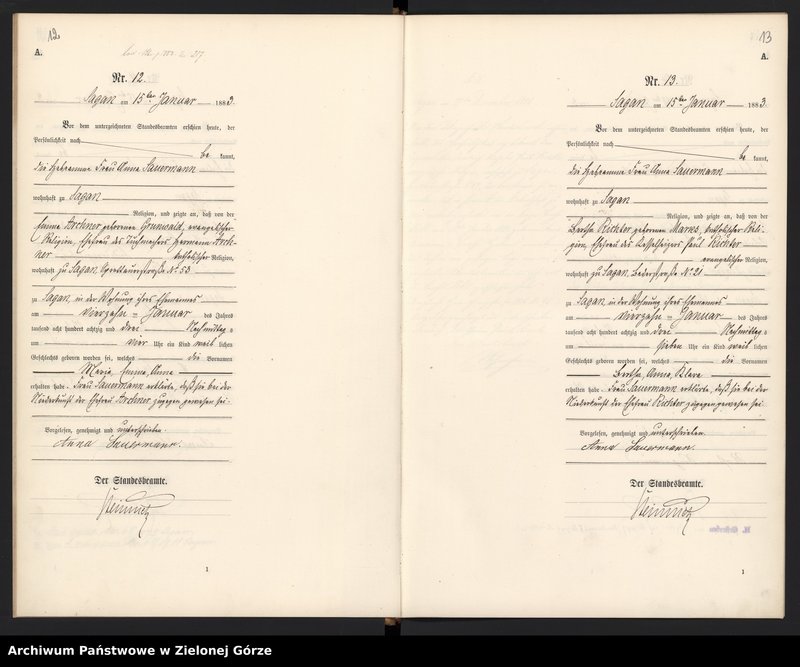 12
A.
Nr. 12.
Sagan am 15ten Januar 1883.
Vor dem unterzeichneten Standesbeamten erschien heute, der
Persönlichkeit nach
be kannt,
die Hebeamme Frau Anna Sauermann
wohnhaft zu Sagan
Religion, und zeigte an, daß von der
Emma Archner geborenen Grunwald, evangelischer
Religion, Ehefrau des Hermann Arch-
ner katholischer Religion,
wohnhaft zu Sagan, No 53
zu Sagan in der Wohnung ihres Ehemannes
am vierzehn = Januar des Jahres
tausend acht hundert achtzig und drei Nachmittag s
um vier Uhr ein Kind weib lichen
Geschlechts geboren worden sei, welches die Vornamen
Maria, Emma, Anna
erhalten habe. Frau Sauermann erklärte, daß sie bei der
Niederkunft der Ehefrau Archner zugegen gewesen sei.
Vorgelesen, genehmigt und unterschrieben.
Anna Sauermann.
Der Standesbeamte.
1
13
A.
Nr. 13.
Sagan am 15ten Januar 1883.
Vor dem unterzeichneten Standesbeamten erschien heute, der
Persönlichkeit nach
be kannt,
die Hebeamme Frau Anna Sauermann
wohnhaft zu Sagan
Religion, und zeigte an, daß von der
Bertha Richter geborenen katholischer Reli-
gion, Ehefrau des Kesselheizers Paul Richter
evangelischer Religion,
wohnhaft zu Sagan, No 21
zu Sagan, in der Wohnung ihres Ehemannes
am vierzehn = Januar des Jahres
tausend acht hundert achtzig und drei Nachmittag s
um sieben Uhr ein Kind weib lichen
Geschlechts geboren worden sei, welches die Vornamen
Bertha, Anna, Klara
erhalten habe. Frau Sauermann erklärte, daß sie bei der
Niederkunft der Ehefrau Richter zugegen gewesen sei.
Vorgelesen, genehmigt und unterschrieben.
Anna Sauermann.
Der Standesbeamte.
1
Archiwum Państwowe w Zielonej Górze